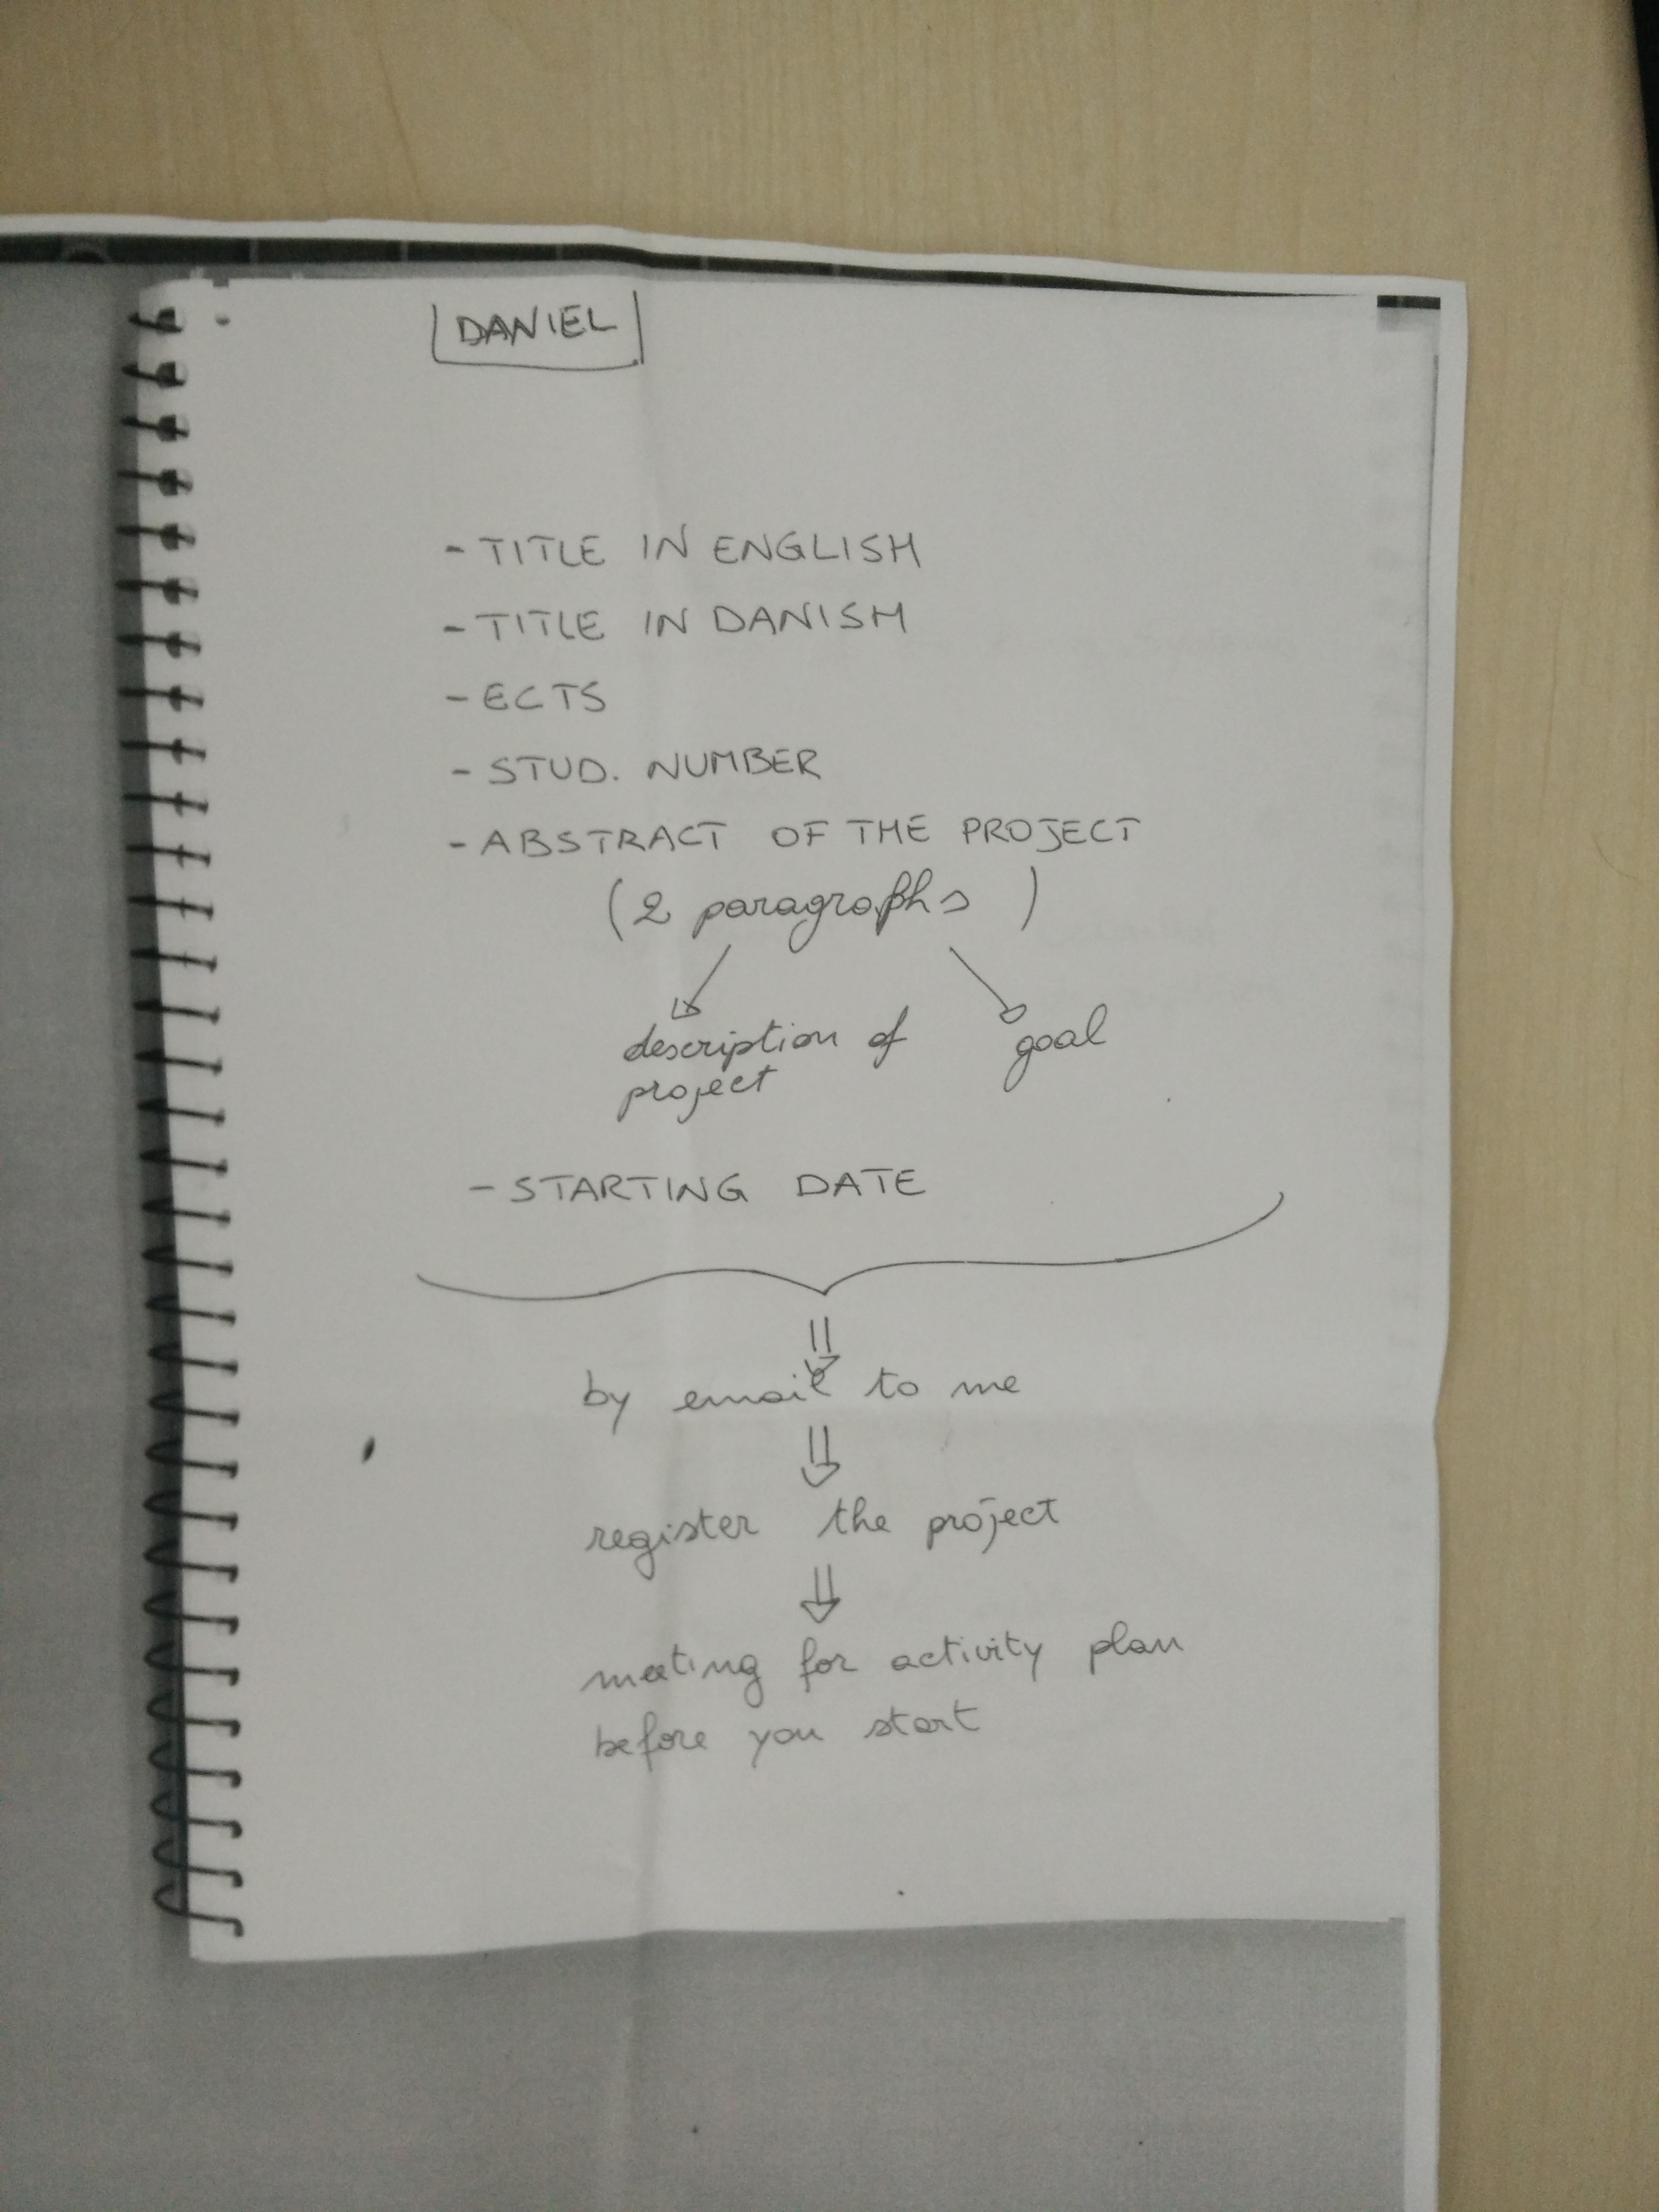 DANIEL
- TITLE IN ENGLISH
- TITLE IN DANISH
- ECTS
- STUD. NUMBER
- ABSTRACT OF THE PROJECT
(2 paragraphs)
description of goal
project
- STARTING DATE
by email to me
register the project
meeting for activity plan
before you start